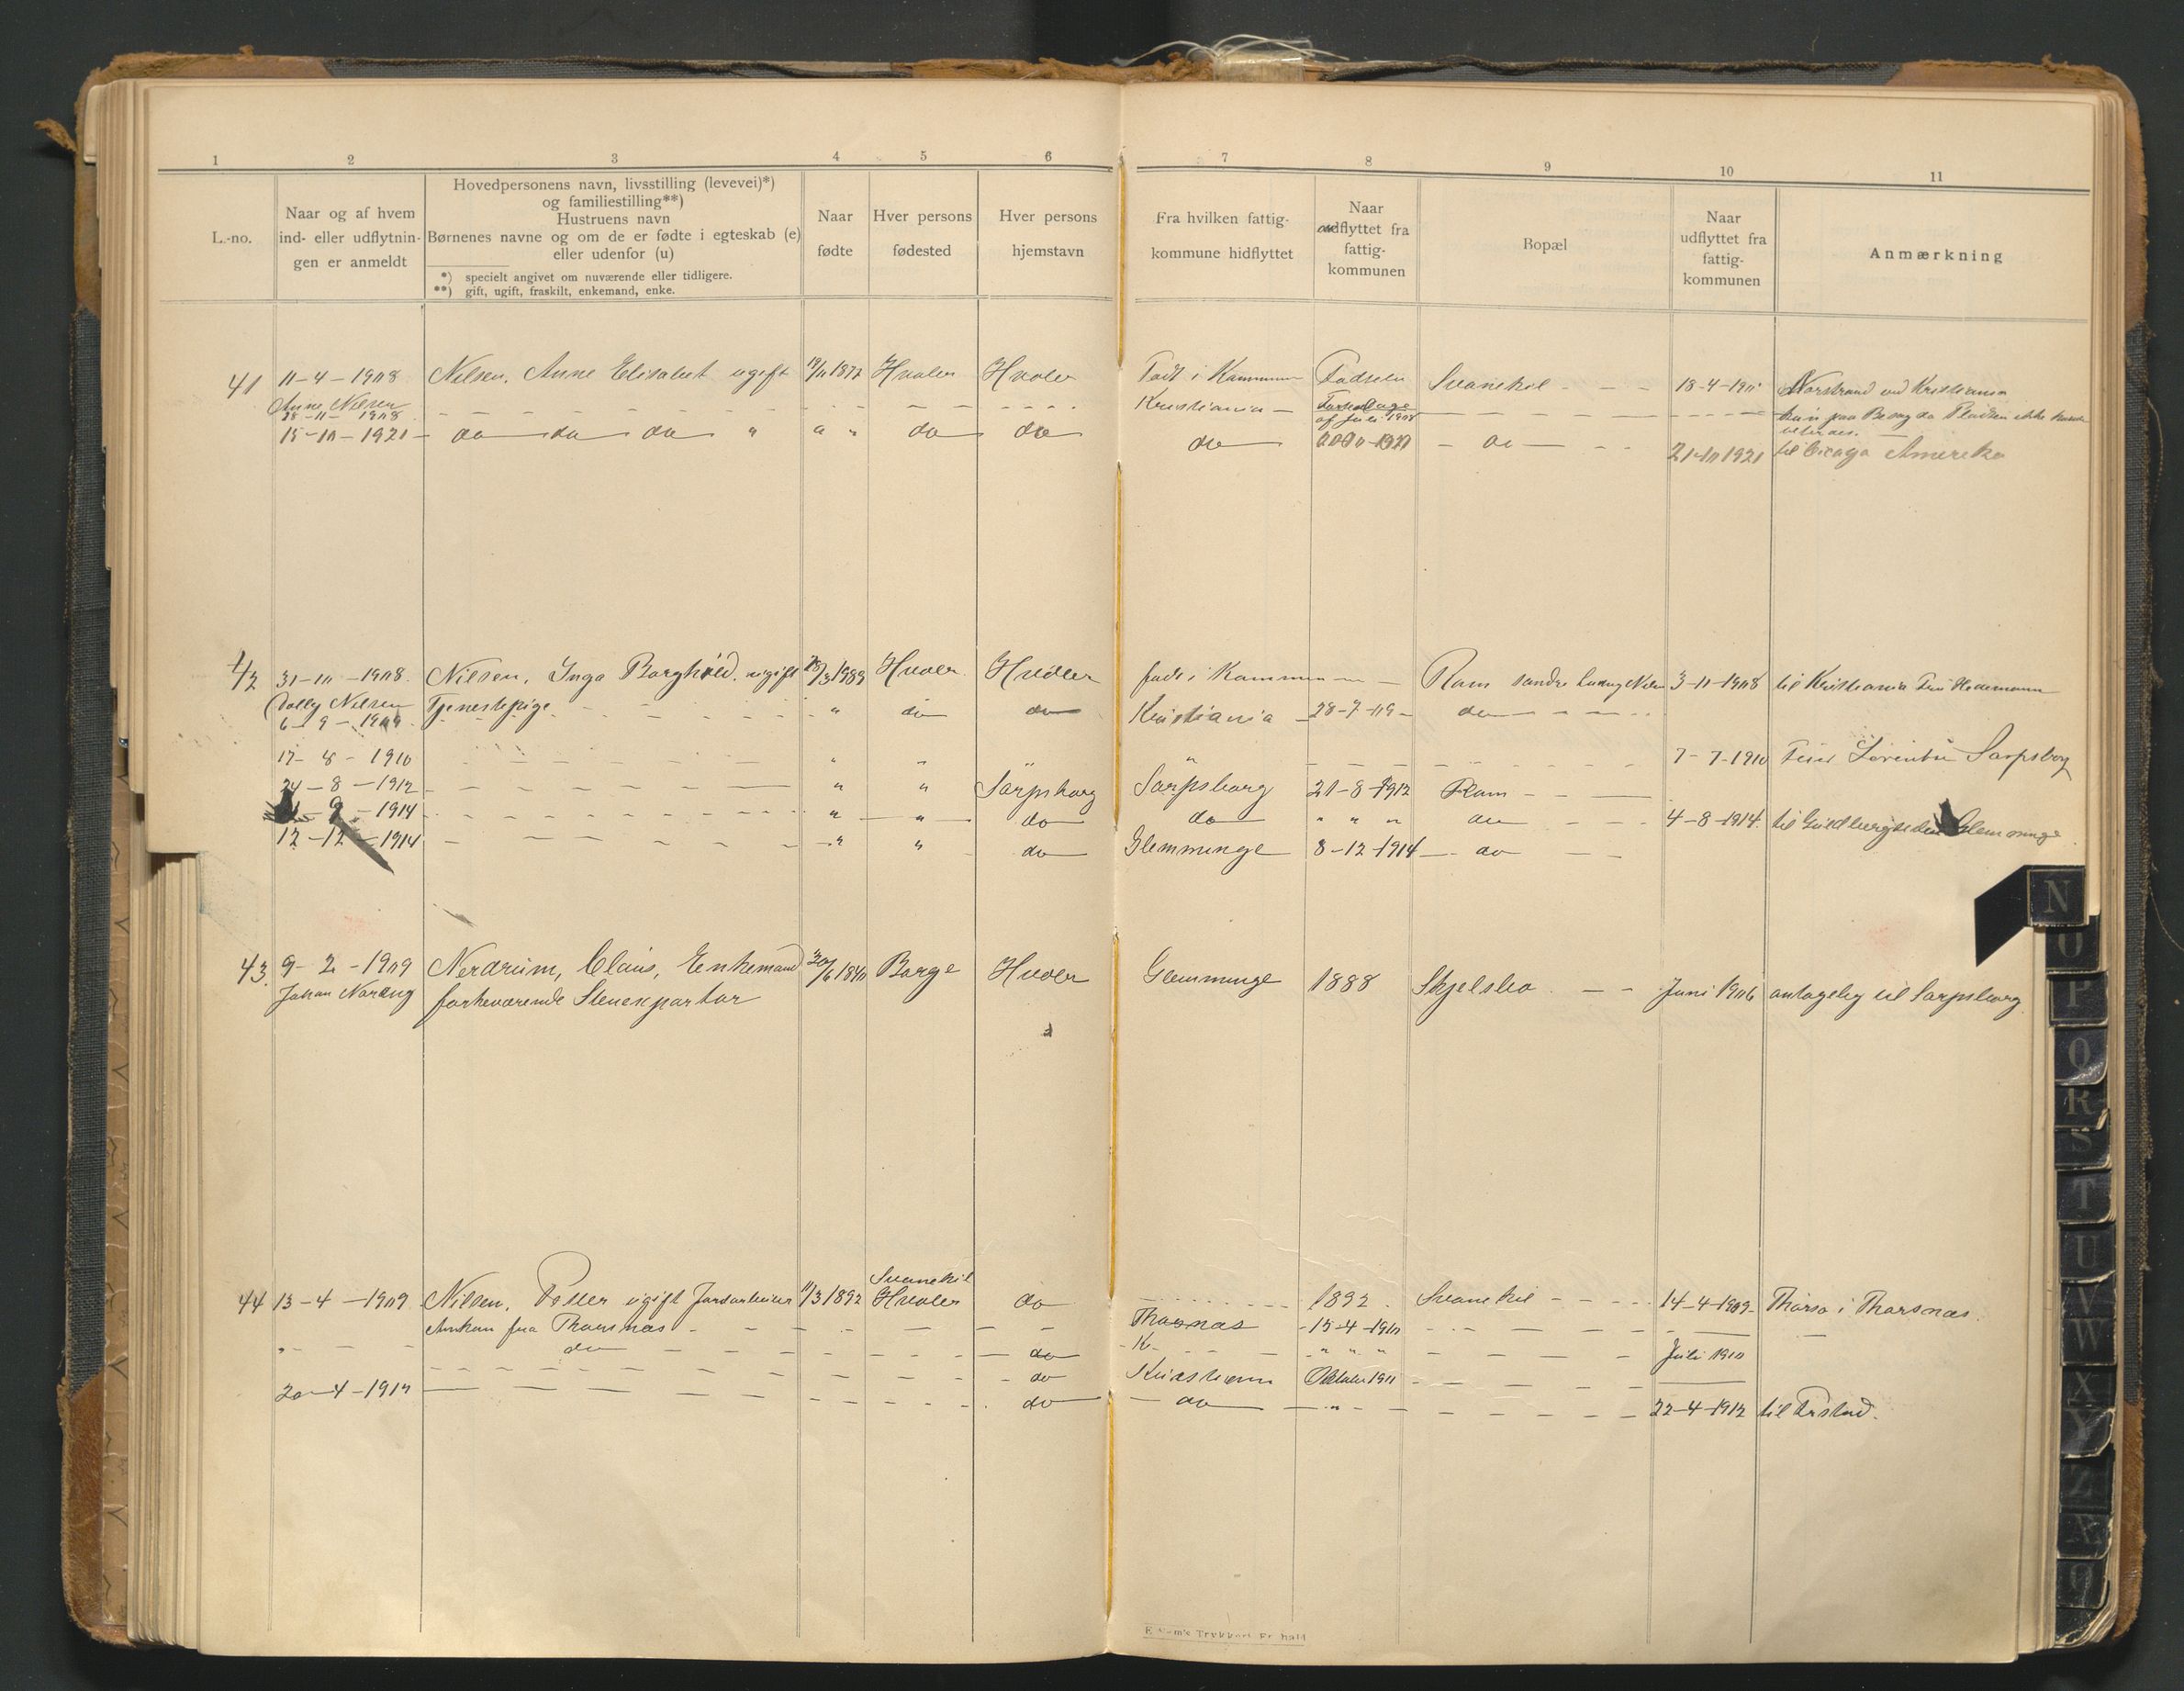 1 2 3 4 5 6 7 8 9 10 11
L.-no.
Naar og af hvem
ind- eller udflytnin-
gen er anmeldt
Hovedpersonens navn, livsstilling (levevei)*)
og familiestilling**)
Hustruens navn
Børnenes navne og om de er fødte i egteskab (e)
eller udenfor (u)
*) specielt angivet om nuværende eller tidligere.
**) gift, ugift, fraskilt, enkemand, enke.
Naar
fødte
Hver persons
fødested
Hver persons
hjemstavn
Fra hvilken fattig-
kommune hidflyttet
Naar
udflyttet fra
fattig-
kommunen
Bopæl
Naar
udflyttet fra
fattig-
kommunen
Anmærkning
41 11-4-1908 Nilsen, Anne Elisabet ugift 19/11 1877 Hvaler Hvaler Født i Kommunen Fødselen Svanekil - - - 18-4-190 Norstrand ved Kristiania
Anne Nilsen
28-11-1908 - - - Kristiania - af Juli 1908 - - - kun paa Besøg da Pladsen ikke kunde
15-10-1921 - do do do " " " do do do 1920 - do - - - 21-10 1921 til Cicago Amerika
42 31-10-1908. Nilsen, Inga Borghild. ugift 3 1989 Hvaler Hvaler født i Kommunen - Rom søndre Ludvig Nilsen 3-11-1908 til Kristiania Hedemann
Dolly Nilsen Tjenestepige - - - " do do Kristiania - 28-7-09 - do - - -
6-9-1909.
17-8-1910 - - - " " " " - - - 7-7-1910 Sarpsborg
24-8-1912 - - - " " Sarpsborg Sarpsborg 21-8-1912 Rom - - -
-9-1914 - - - " " do do " " " do 4-8-1914. til Glemminge
12-12-1914 - - - " " do Glemminge 8-12-1914 - do - -
43. 9-2-1909 Nerdrum, Claus, Enkemand 30/6 1840 Borge Hvaler Glemminge 1888 Skjelsbo - - Juni 1906 antagelig til Sarpsborg
Johan forhenværende Stenexportør
Svanekil
44 13-4-1909 Nilsen, Petter ugift Jordarbeider 11/3 1892 Hvaler do - - - 1892. Svanekil - - - 14-4-1909 - Thorsø i Thorsnæs.
Ankom fra Thorsnæs - - - Thorsnæs - 15-4-1910 - - -
" - - do - - - do - K - - - " " " - - - Juli 1910
- - - do Kristiania Oktober 1911 - - -
20-4-1912 - - - do - do - " - - - 22-4-1912 til
E. Sem's Trykkeri Fr.hald
N
O
P
Q
R
S
T
U
V
W
X
Y
Z
Æ
Ø